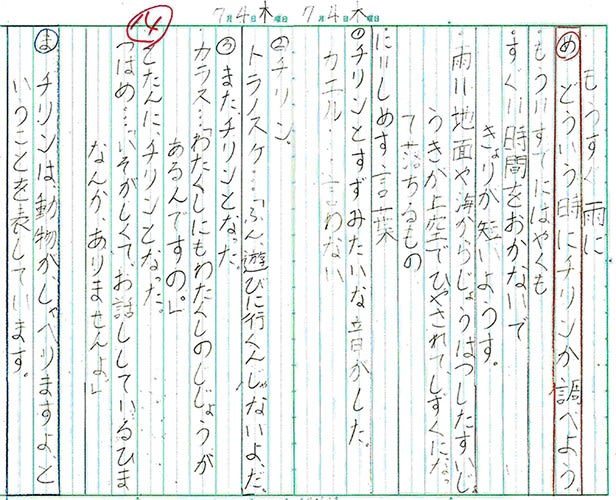 7月4日木曜日 7月4日木曜日
もうすぐ雨に
め どういう時にチリンか調べよう。
・もう=すでにはやくも
・すぐ=時間をおかないで
きょりが短いようす。
・雨=地面や海からじょうはつしたすいじょ
うきが上空でひやされてしずくになっ
て落ちるもの
に=しめす言葉
①チリンとすずみたいな音がした。
カエル…言わない
②チリン。
トラノスケ…「ふん、遊びに行くんじゃないよ、だ。」
③またチリンとなった。
カラス…「わたくしにもわたくしのじじょうが
あるんですの。」
14
とたんに、チリンとなった。
つばめ…「いそがしくて、お話ししているひま
なんか、ありませんよ。」
ま チリンは、動物がしゃべりますよ、と
いうことを表しています。